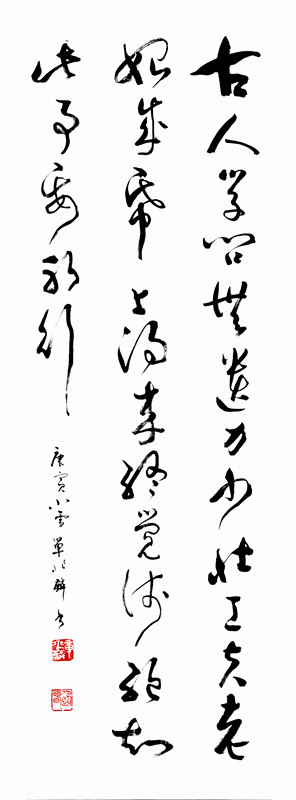 古人學問無遺力少壯工夫老
始成帋上得來終覺淺絕知
此事要躬行
庚寅小雪單書